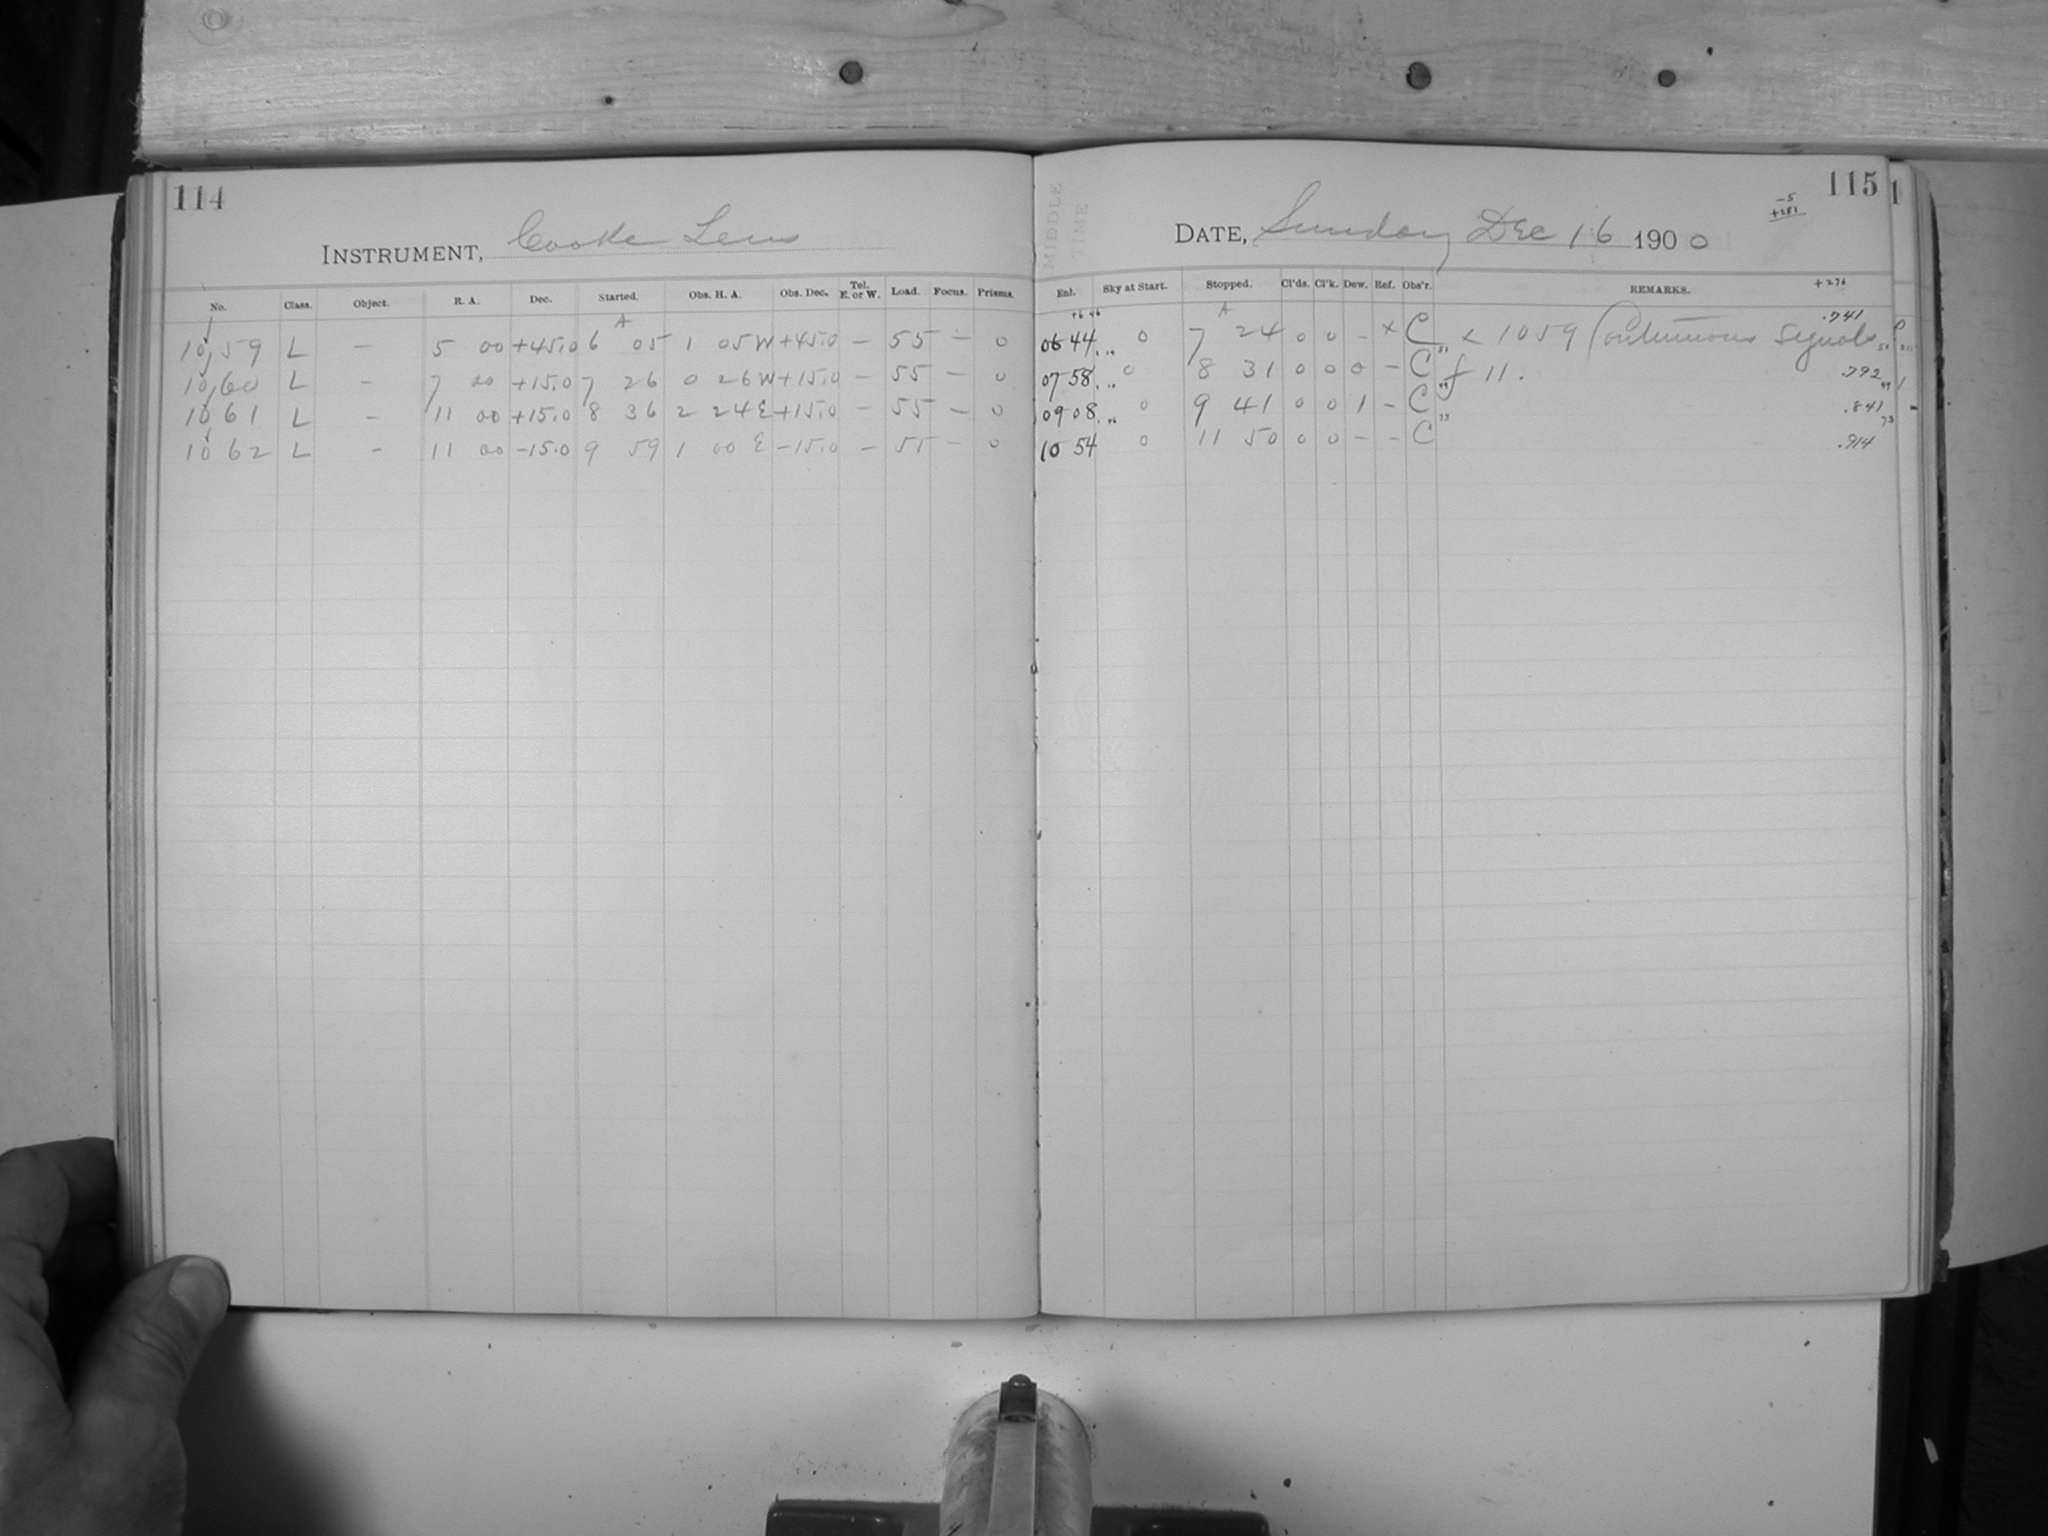 114
INSTRUMENT, Cooke Lens
No. Class. Object. R. A. Dec. Started. Obs. H. A. Obs. Dec. Tel. E. or W. Load. Focus. Prisms.
A
10,59 L – 5 00 +45.0 6 05 1 05 W +45.0 – 55 – 0
10,60 L – 7 00 +15.0 7 26 0 26 W +15.0 – 55 – 0
10 61 L – 11 00 +15.0 8 36 2 24 E +15.0 – 55 – 0
10 62 L – 11 00 –15.0 9 59 1 00 E –15.0 – 55 – 0
115
–5
+281
MIDDLE TIME
DATE, Sunday Dec 16 1900
Enl. Sky at Start. Stopped. Cl'ds. Cl'k. Dew. Ref. Obs'r. REMARKS. +276
+6 46 A
06 44 0 7 24 0 0 – × C × 1059 Continuous Signals .741
07 58 0 8 31 0 0 0 – C f 11. .792
09 08 0 9 41 0 0 1 – C .841
10 54 0 11 50 0 0 – – C .914